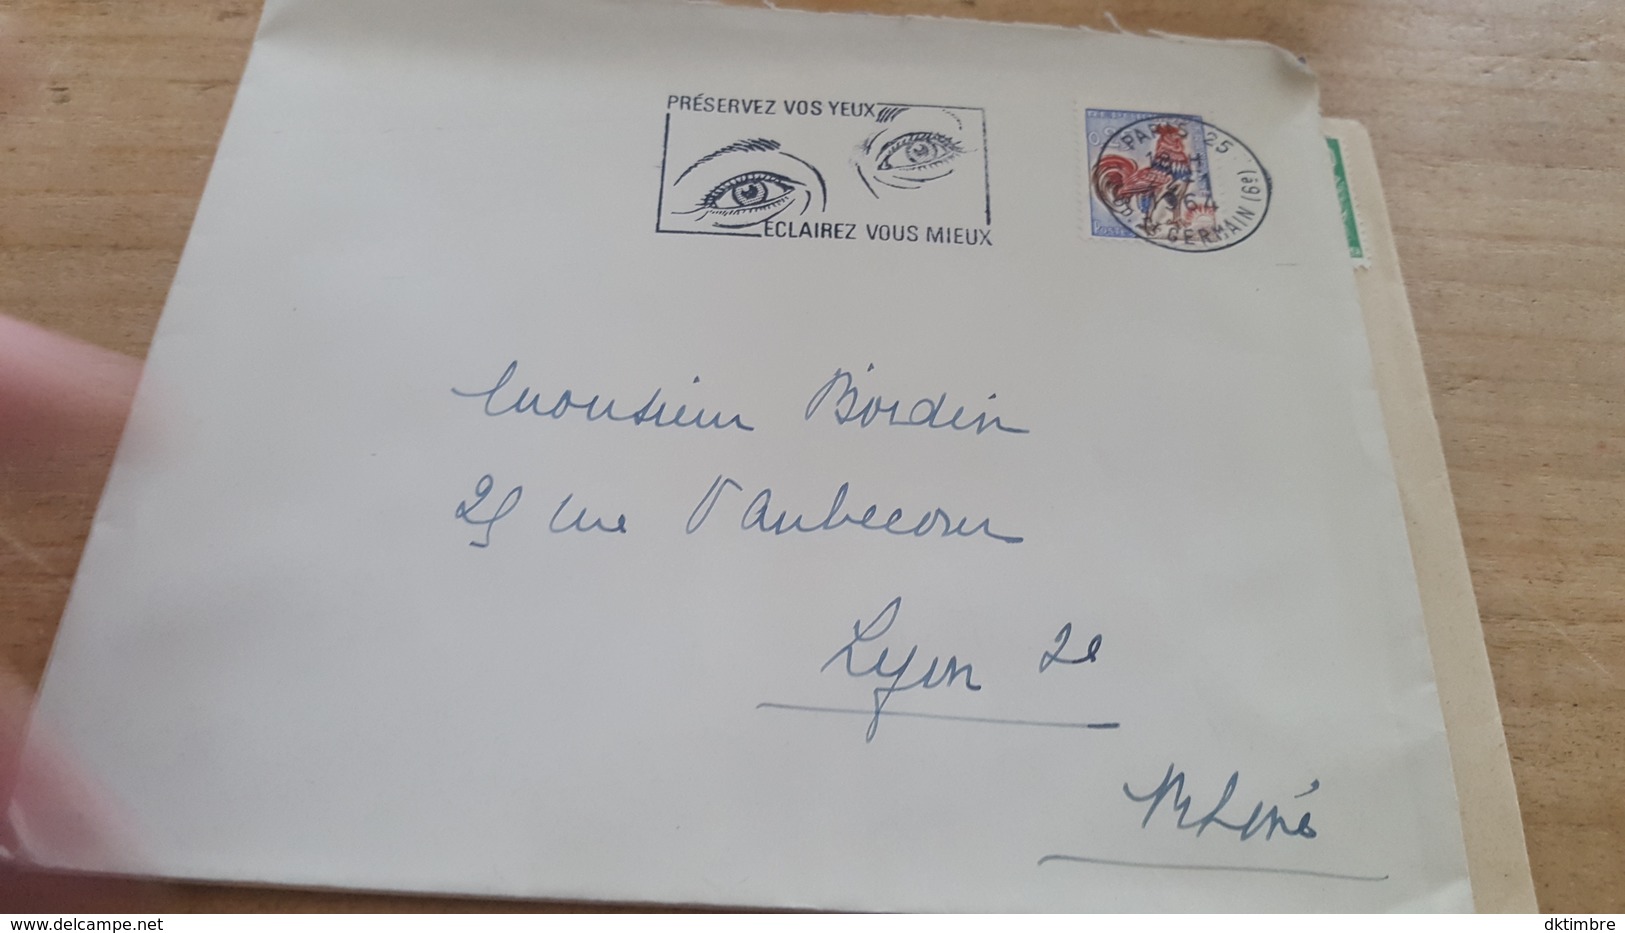 PRÉSERVEZ VOS YEUX
ECLAIREZ VOUS MIEUX
PARIS 25
1964
Bd. St GERMAIN (9è)
Monsieur Bordin
25 rue d'Aubecour
Lyon 2e
Rhône
delcampe.net
dktimbre